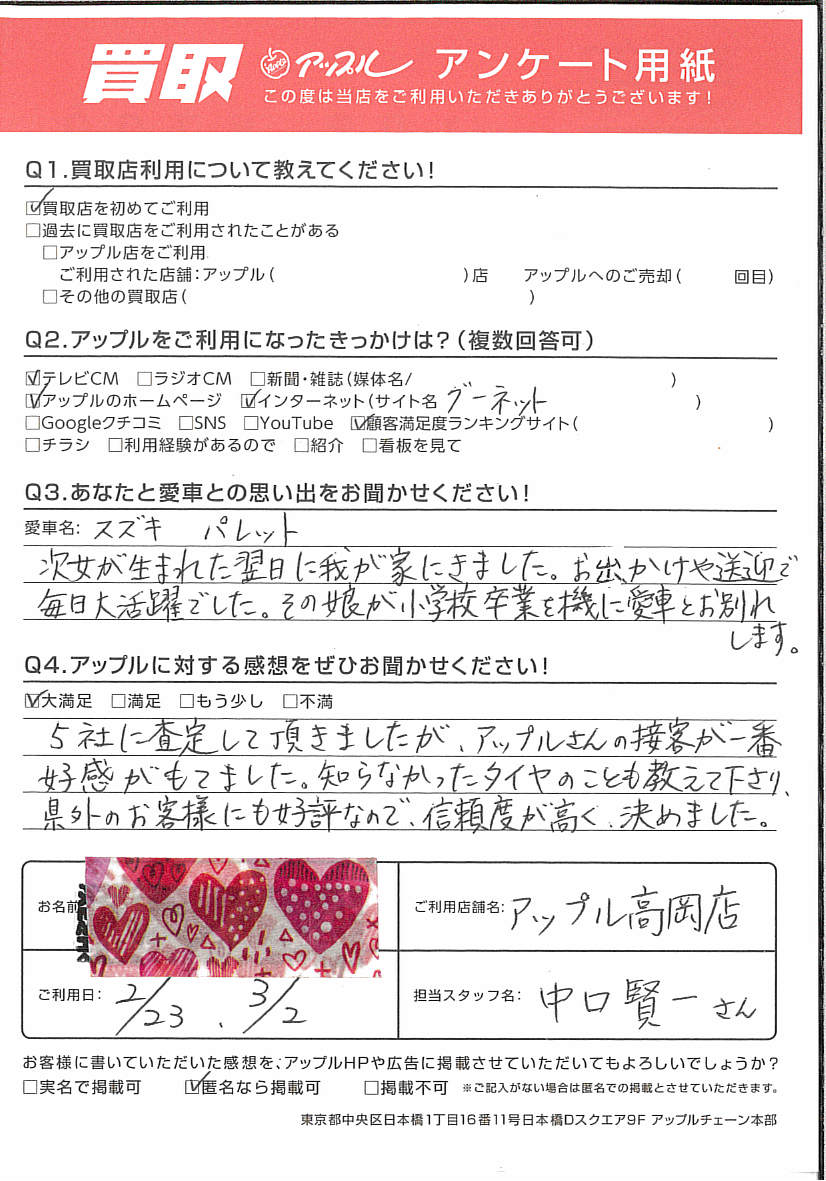 買取 アップル アンケート用紙
この度は当店をご利用いただきありがとうございます!
Q1.買取店利用について教えてください!
☑買取店を初めてご利用
□過去に買取店をご利用されたことがある
□アップル店をご利用
ご利用された店舗:アップル( )店 アップルへのご売却( 回目)
□その他の買取店( )
Q2.アップルをご利用になったきっかけは?(複数回答可)
☑テレビCM □ラジオCM □新聞・雑誌(媒体名/ )
☑アップルのホームページ ☑インターネット(サイト名 グーネット )
□Googleクチコミ □SNS □YouTube ☑顧客満足度ランキングサイト( )
□チラシ □利用経験があるので □紹介 □看板を見て
Q3.あなたと愛車との思い出をお聞かせください!
愛車名: スズキ パレット
次女が生まれた翌日に我が家にきました。お出かけや送迎で
毎日大活躍でした。その娘が小学校卒業を機に愛車とお別れ
します。
Q4.アップルに対する感想をぜひお聞かせください!
☑大満足 □満足 □もう少し □不満
5社に査定して頂きましたが、アップルさんの接客が一番
好感がもてました。知らなかったタイヤのことも教えて下さり、
県外のお客様にも好評なので、信頼度が高く、決めました。
お名前 ご利用店舗名: アップル高岡店
ご利用日: 2/23 、 3/2 担当スタッフ名: 中口賢一さん
お客様に書いていただいた感想を、アップルHPや広告に掲載させていただいてもよろしいでしょうか?
□実名で掲載可 ☑匿名なら掲載可 □掲載不可 ※ご記入がない場合は匿名での掲載とさせていただきます。
東京都中央区日本橋1丁目16番11号日本橋Dスクエア9F アップルチェーン本部